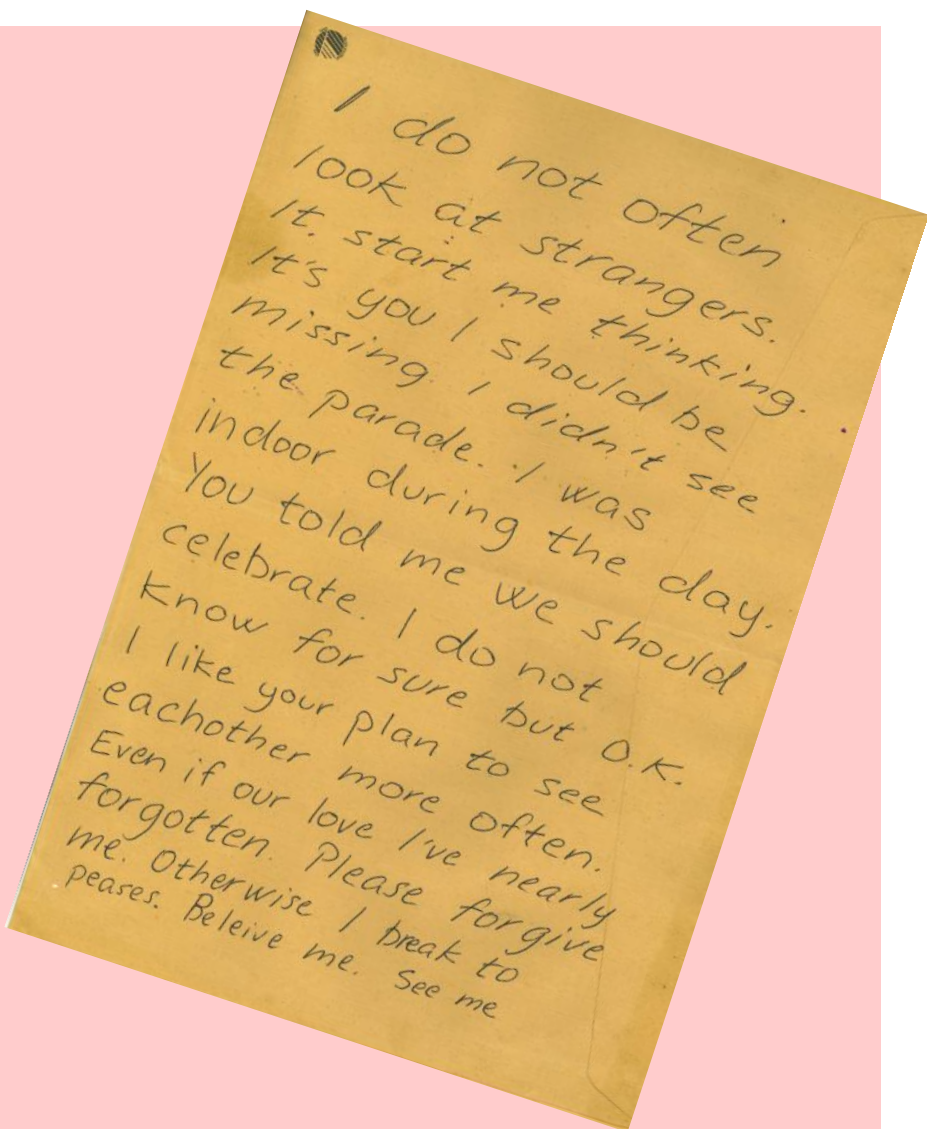 I do not often
look at strangers.
It. start me thinking.
It's you I should be
missing. I didn't see
the parade. I was
indoor during the day.
You told me we should
celebrate. I do not
know for sure but O.K.
I like your plan to see
eachother more often.
Even if our love I've nearly
forgotten. Please forgive
me. Otherwise I break to
peases. Beleive me. See me